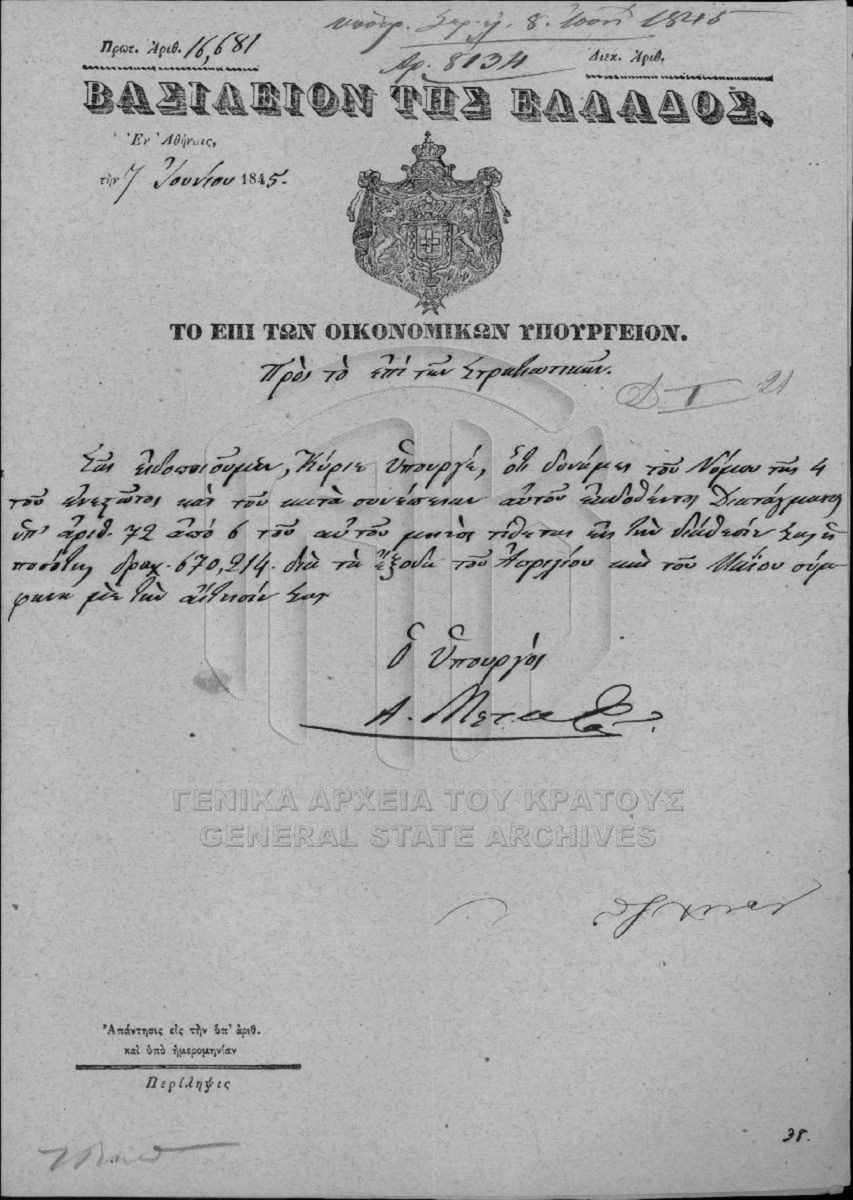 8 1845
Πρωτ. Ἀριθ. 16,681
Ἀρ. 8134
Διεκ. Ἀριθ.
ΒΑΣΙΛΕΙΟΝ ΤΗΣ ΕΛΛΑΔΟΣ.
Ἐν Ἀθήναις,
τὴν 7 Ἰουνίου 1845.
ΤΟ ΕΠΙ ΤΩΝ ΟΙΚΟΝΟΜΙΚΩΝ ΥΠΟΥΡΓΕΙΟΝ.
Πρὸς τὸ ἐπὶ τῶν Στρατιωτικῶν.
21
Σᾶς εἰδοποιοῦμεν, Κύριε Ὑπουργέ, ὅτι δυνάμει τοῦ Νόμου τῆς 4
τοῦ ἐνεστῶτος καὶ τοῦ κατὰ συνέπειαν αὐτοῦ ἐκδοθέντος Διατάγματος
ὑπ' ἀριθ. 72 ἀπὸ 6 τοῦ αὐτοῦ μηνὸς τίθεται εἰς τὴν διάθεσίν Σας ἡ
ποσότης δραχ. 670,214. διὰ τὰ ἔξοδα τοῦ Ἀπριλίου καὶ τοῦ Μαΐου σύμ-
φωνα μὲ τὴν αἴτησίν Σας
Ὁ Ὑπουργὸς
Α. Μεταξᾶ
ΓΕΝΙΚΑ ΑΡΧΕΙΑ ΤΟΥ ΚΡΑΤΟΥΣ
GENERAL STATE ARCHIVES
Ἀπάντησις εἰς τὴν ὑπ' ἀριθ.
καὶ ὑπὸ ἡμερομηνίαν
Περίληψις
38.